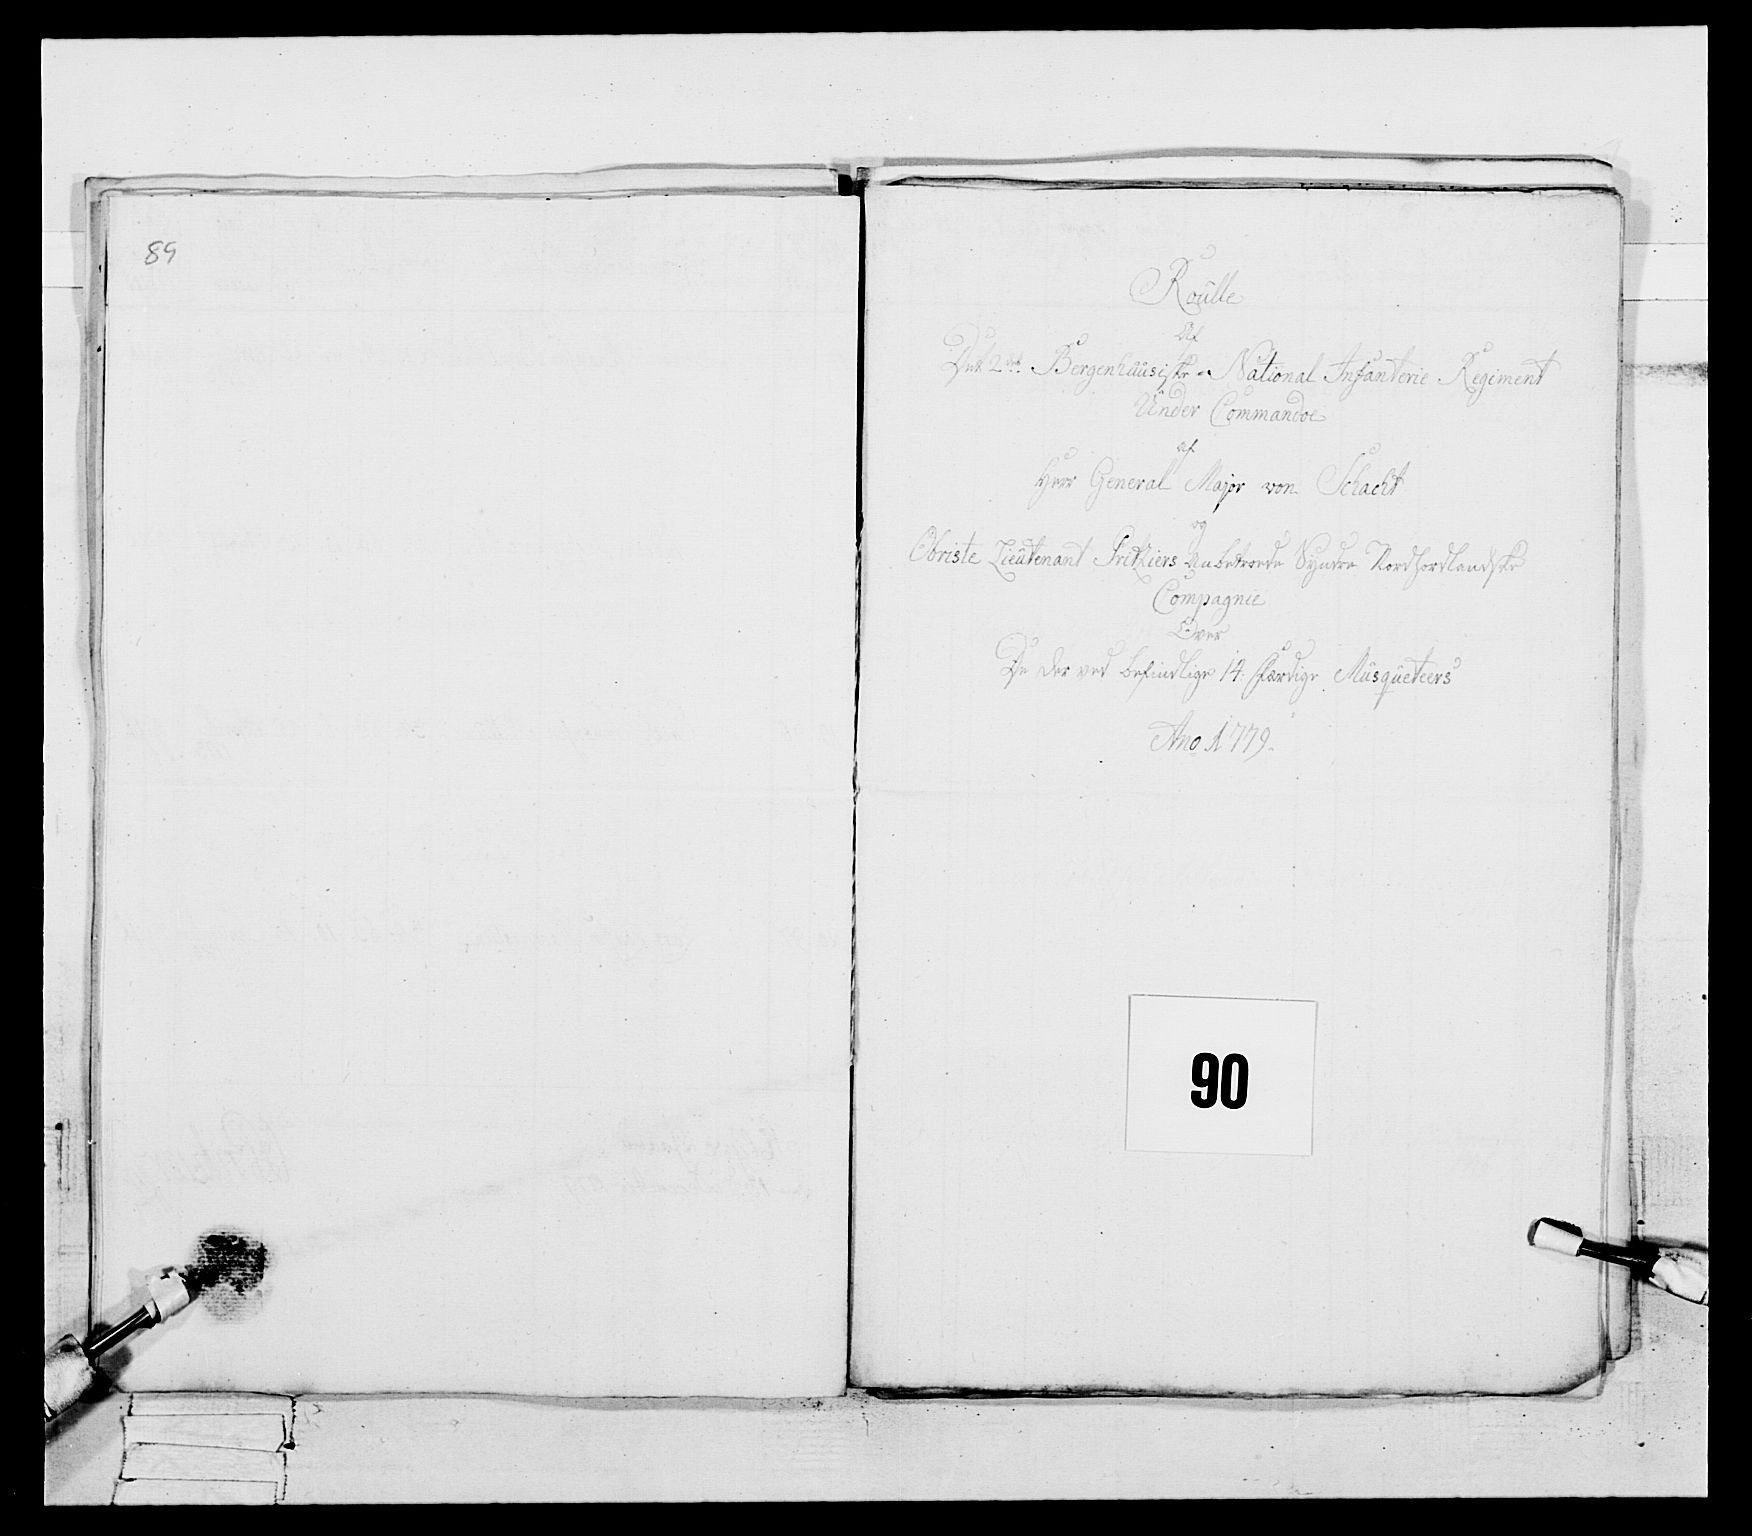 89
Roülle
Af
Det 2det Bergenhüüsiske National Infanterie Regiment
Under Commandoe
af
Herr General Major von Schacht
og
Obriste Lieütenant Fritziers Anbetroede Syndre Nordhordlandske
Compagnie
Over
De der ved befindlige 14 færdige Müsqüeteers
Ano 1779.
90